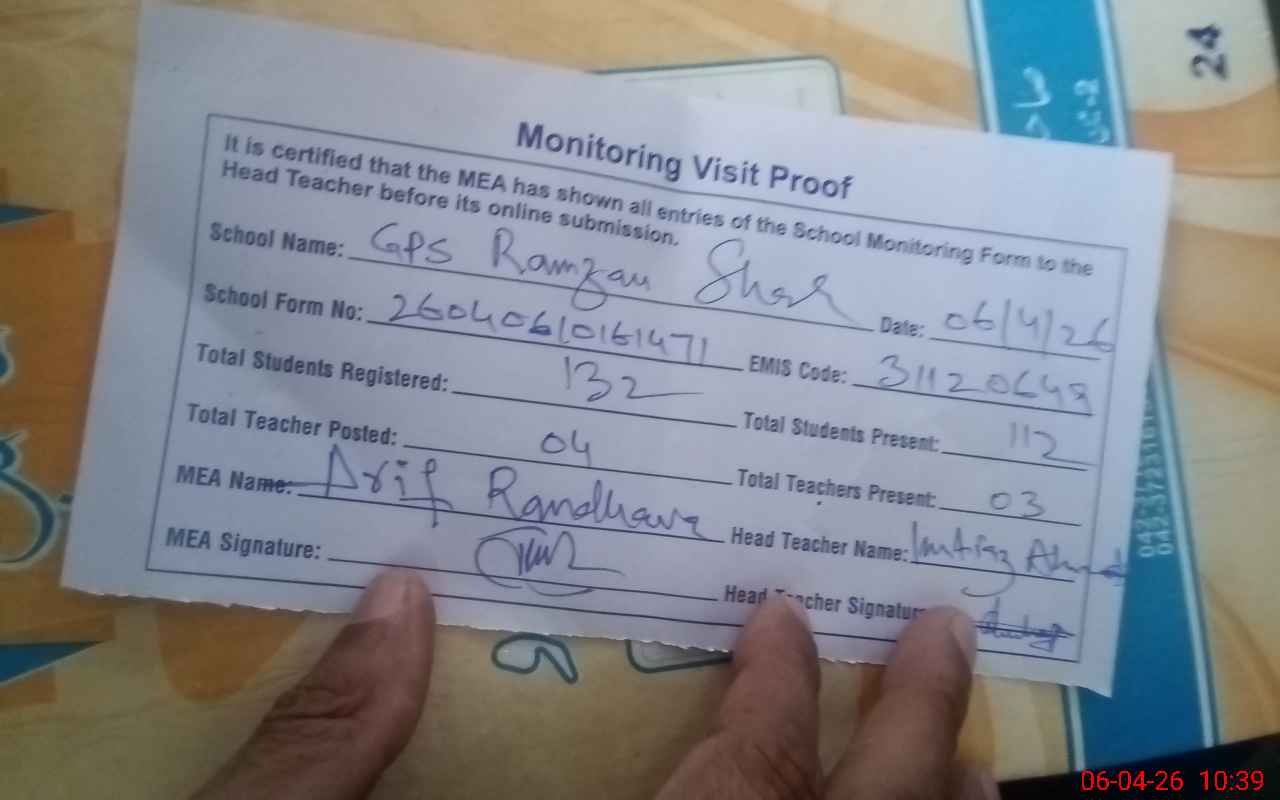 24
Monitoring Visit Proof
It is certified that the MEA has shown all entries of the School Monitoring Form to the
Head Teacher before its online submission.
School Name: GPS Ramzan Shah Date: 06/4/26
School Form No: 26040610161471 EMIS Code: 31120649
Total Students Registered: 132 Total Students Present: 112
Total Teacher Posted: 04 Total Teachers Present: 03
MEA Name: Arif Randhawa Head Teacher Name: Imtiaz Ahmad
MEA Signature: Head Teacher Signature
06-04-26 10:39